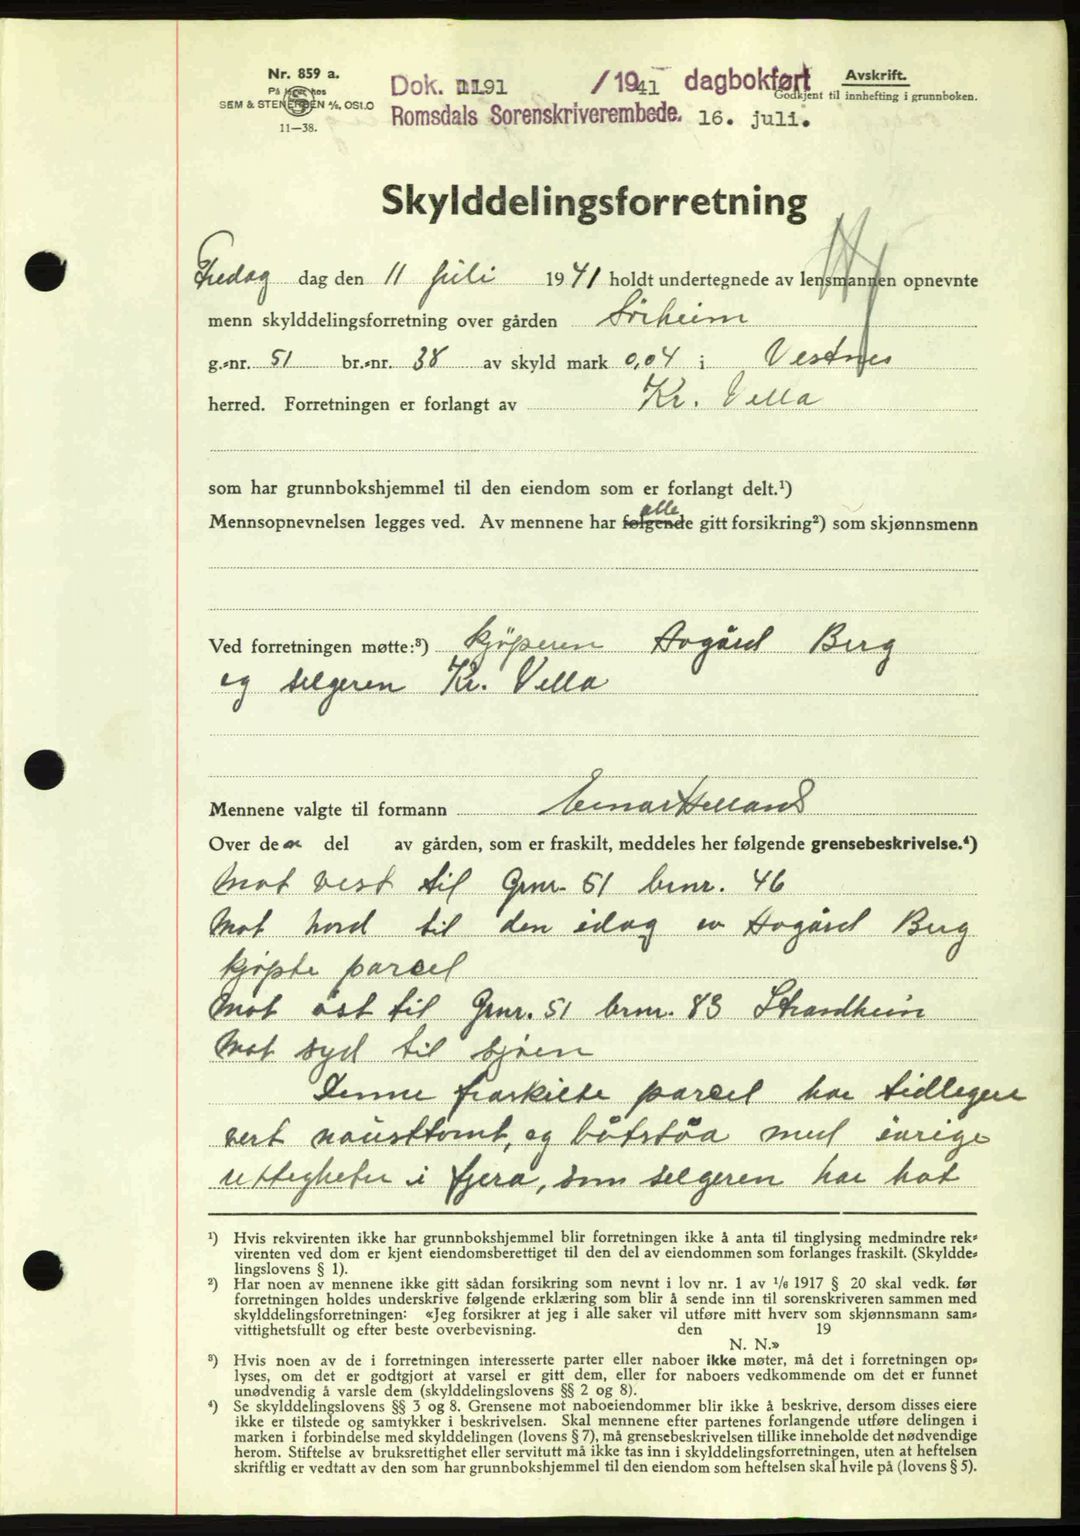 Nr. 859 a.
På lager hos
SEM & STENERSEN A/S, OSLO
11—38.
Dok. 1191 /1941 dagbokført
Romsdals Sorenskriverembede. 16. juli.
Avskrift.
Godkjent til innhefting i grunnboken.
Skylddelingsforretning
Fredag dag den 11 juli 1941 holdt undertegnede av lensmannen opnevnte
menn skylddelingsforretning over gården Sörheim
g.-nr. 51 br.-nr. 38 av skyld mark 0,04 i Vestnes
herred. Forretningen er forlangt av Kr. Vella
som har grunnbokshjemmel til den eiendom som er forlangt delt.¹)
alle
Mennsopnevnelsen legges ved. Av mennene har følgende gitt forsikring²) som skjønnsmenn
Ved forretningen møtte:³) kjöperen Hogård Berg
og selgeren Kr. Vella
Mennene valgte til formann Einar Helland
Over den del av gården, som er fraskilt, meddeles her følgende grensebeskrivelse.⁴)
Mot vest til Grnr. 51 brnr. 46
Mot nord til den idag av Hogård Berg
kjöpte parcel
Mot öst til Grnr. 51 brnr. 83 Strandheim
Mot syd til sjöen
Denne fraskilte parcel har tidlegere
vert nousttomt, og båtstöa med övrige
rettigheter i fjera, som selgeren har hat
¹) Hvis rekvirenten ikke har grunnbokshjemmel blir forretningen ikke å anta til tinglysing medmindre rek-
virenten ved dom er kjent eiendomsberettiget til den del av eiendommen som forlanges fraskilt. (Skyldde-
lingslovens § 1).
²) Har noen av mennene ikke gitt sådan forsikring som nevnt i lov nr. 1 av ¹/₆ 1917 § 20 skal vedk. før
forretningen holdes underskrive følgende erklæring som blir å sende inn til sorenskriveren sammen med
skylddelingsforretningen: «Jeg forsikrer at jeg i alle saker vil utføre mitt hverv som skjønnsmann sam-
vittighetsfullt og efter beste overbevisning. den 19
N. N.»
³) Hvis noen av de i forretningen interesserte parter eller naboer ikke møter, må det i forretningen op-
lyses, om det er godtgjort at varsel er gitt dem, eller for naboers vedkommende om det er funnet
unødvendig å varsle dem (skylddelingslovens §§ 2 og 8).
⁴) Se skylddelingslovens §§ 3 og 8. Grensene mot naboeiendommer blir ikke å beskrive, dersom disses eiere
ikke er tilstede og samtykker i beskrivelsen. Skal mennene efter partenes forlangende utføre delingen i
marken i forbindelse med skylddelingen (lovens § 7), må grensebeskrivelsen tillike inneholde det nødvendige
herom. Stiftelse av bruksrettighet eller servitutt må ikke tas inn i skylddelingsforretningen, uten at heftelsen
skriftlig er vedtatt av den som har grunnbokshjemmel til den eiendom som heftelsen skal hvile på (lovens § 5).